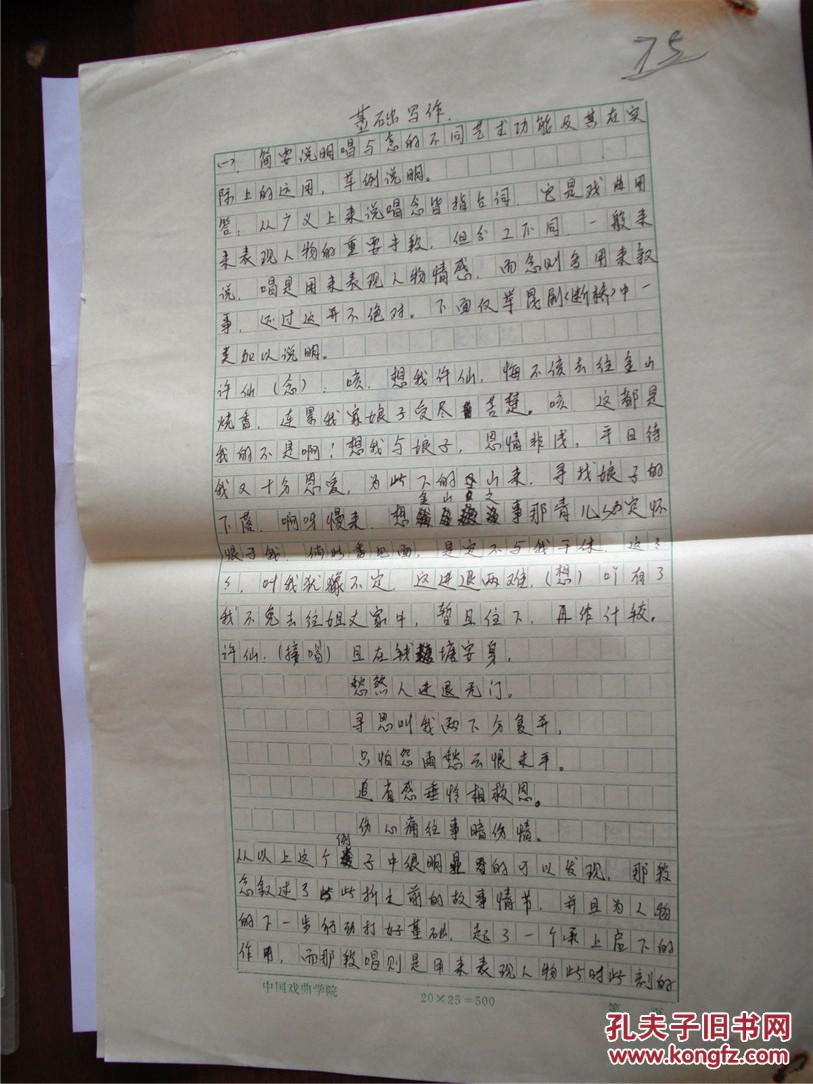 75
基础写作.
(一). 简要说明唱与念的不同艺术功能及其在实
际上的运用, 举例说明。
答: 从广义上来说唱念皆指台词. 它是戏曲用
来表现人物的重要手段. 但分工不同. 一般来
说. 唱是用来表现人物情感. 而念则多用来叙
事. 还过这并不绝对. 下面仅举昆剧《断桥》中一
类加以说明。
许仙 (念): 咳. 想我许仙. 悔不该去往金山
烧香. 连累我家娘子受尽苦楚。咳 这都是
我的不是啊! 想我与娘子. 恩情非浅, 平日待
我又十分恩爱, 为此下的山来. 寻找娘子的
下落. 啊呀慢来. 想金山之事那青儿必定怀
恨于我. 倘此番见面, 是定不与我干休. 这々
々, 叫我犹豫不定. 这进退两难. (想) 吖有了
我不免去往姐丈家中, 暂且住下. 再作计较。
许仙. (接唱) 且在钱塘安身,
愁煞人进退无门。
寻思叫我两下分复并,
只怕怨雨愁云恨未平。
追省感垂怜相救恩。
伤心痛往事暗伤情。
从以上这个例子中很明显的可以发现. 那段
念叙述了此折之前的故事情节. 并且为人物
的下一步行动打好基础. 起了一个承上启下的
作用. 而那段唱则是用来表现人物此时此刻的
中国戏曲学院
20×25=500
第
孔夫子旧书网
www.kongfz.com